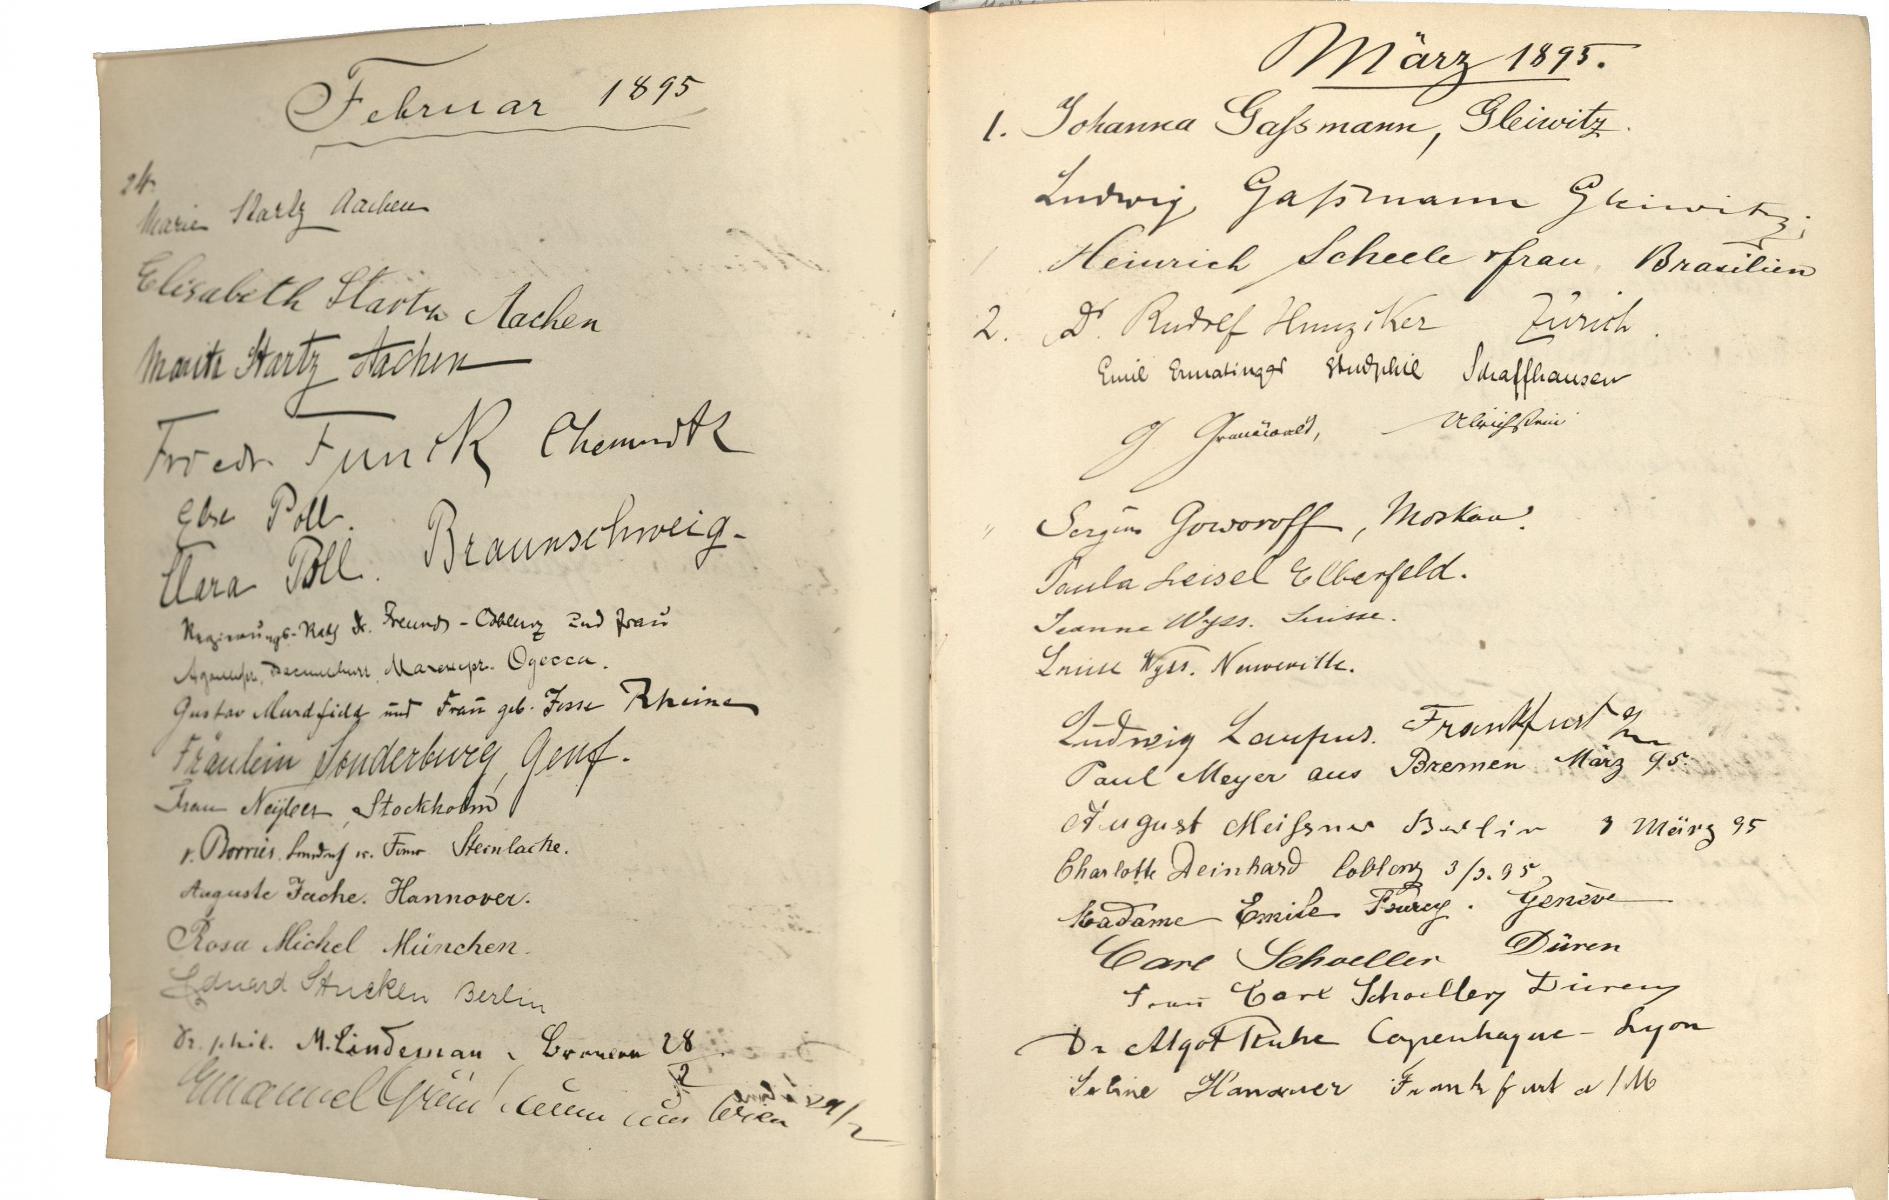 Februar 1895
24.
Marie Startz Aachen
Elisabeth Startz Aachen
Moritz Startz Aachen
Friedr. Funck Chemnitz
Else Poll.
Clara Poll. Braunschweig.
Regierungs-Rath Dr. Freund - Coblenz und Frau
Одесса.
Gustav Murdfield und Frau geb. Jesse Rheine
Fräulein Sonderburg, Genf.
Frau Stockholm
v. Borries u. Frau Steinlacke.
Auguste Fache. Hannover.
Rosa Michel München.
Eduard Stucken Berlin
Dr. phil. M. Lindeman, Bremen 28/2
Emanuel Grün aus Wien 29/2
März 1895.
1. Johanna Gaßmann, Gleiwitz.
Ludwig Gaßmann Gleiwitz;
Heinrich Scheele & Frau, Brasilien
2. Dr Rudolf Hunziker Zürich.
Emil Ermatinger stud phil Schaffhausen
G Grünewald, Ulrichstein
" Sergius Goworoff, Moskau.
Paula Leisel Elberfeld.
Jeanne Wyss. Suisse.
Louise Wyss. Neuveville.
Ludwig Laupus. Frankfurt a/m
Paul Meyer aus Bremen März 95.
August Meißner Berlin 3 März 95
Charlotte Deinhard Coblenz 3/3. 95
Madame Emile Genève
Carl Schoeller Düren
Frau Carl Schoeller Düren
Dr Algot Ruhe Copenhague - Lyon
Sabine Hanauer Frankfurt a/M